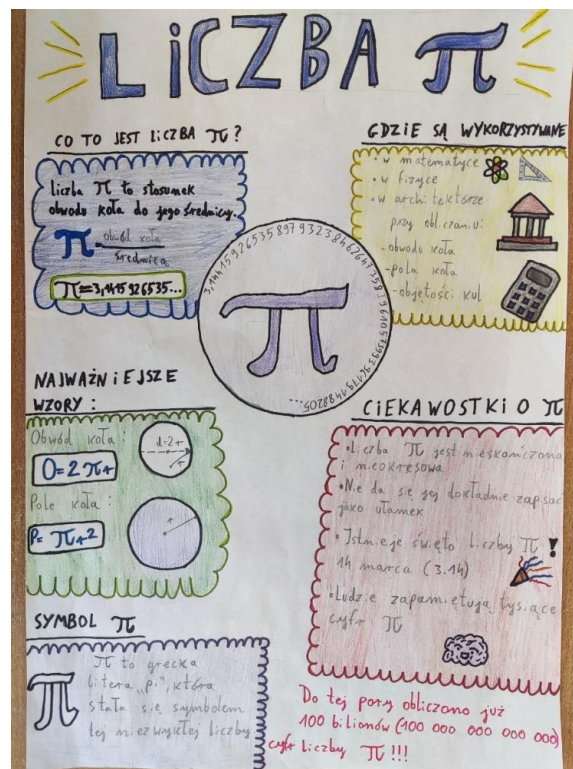 LiCZBA π
CO TO JEST LiCZBA π?
liczba π to stosunek
obwodu koła do jego średnicy.
π= obwód koła
średnica
π=3,1415926535...
GDZIE SĄ WYKORZYSTYWANE
• w matematyce
• w fizyce
• w architekturze
przy obliczaniu:
-obwodu koła
-pola koła
-objętości kul
π
NAJWAŻNiEJSZE
WZORY:
Obwód koła:
O=2πr
d=2r
r
Pole koła:
P=πr2
r
CiEKAWOSTKi O π
•Liczba π jest nieskończona
i nieokresowa
•Nie da się jej dokładnie zapisać
jako ułamek
•Istnieje święto liczby π!
14 marca (3.14)
•Ludzie zapamiętują tysiące
cyfr π
SYMBOL π
π
π to grecka
litera „pi”, która
stała się symbolem
tej niezwykłej liczby
Do tej pory obliczono już
100 bilionów (100 000 000 000 000)
cyfr liczby π!!!